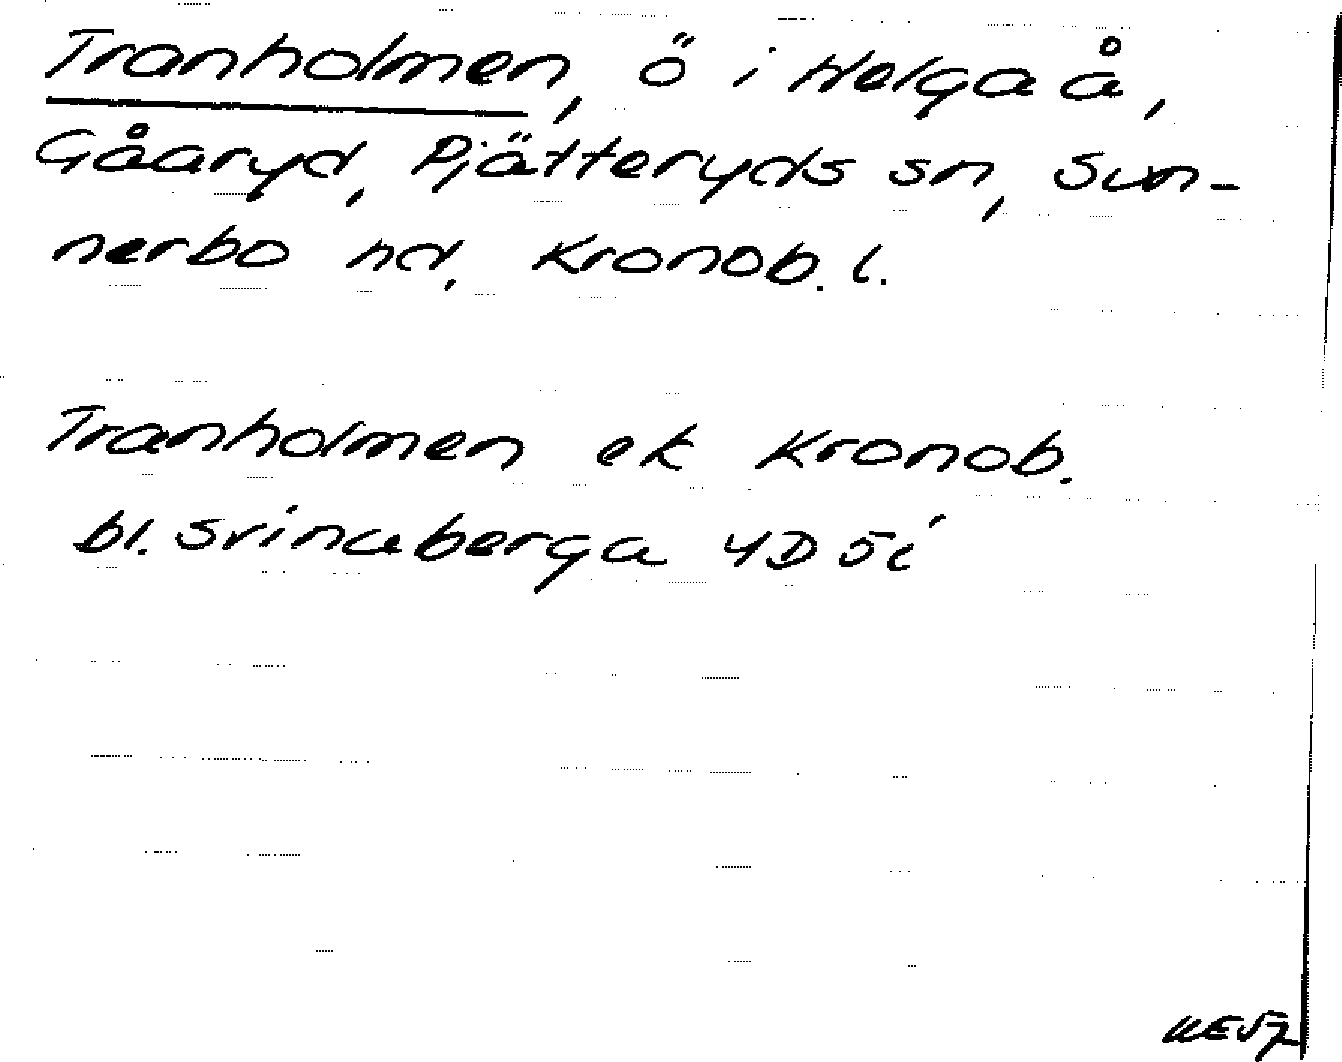 Tranholmen, ö i Helgaå,
Gåaryd, Pjätteryds sn, Sun-
nerbo hd, Kronob. l.
Tranholmen ek Kronob.
bl. Svinaberga 4D 5i